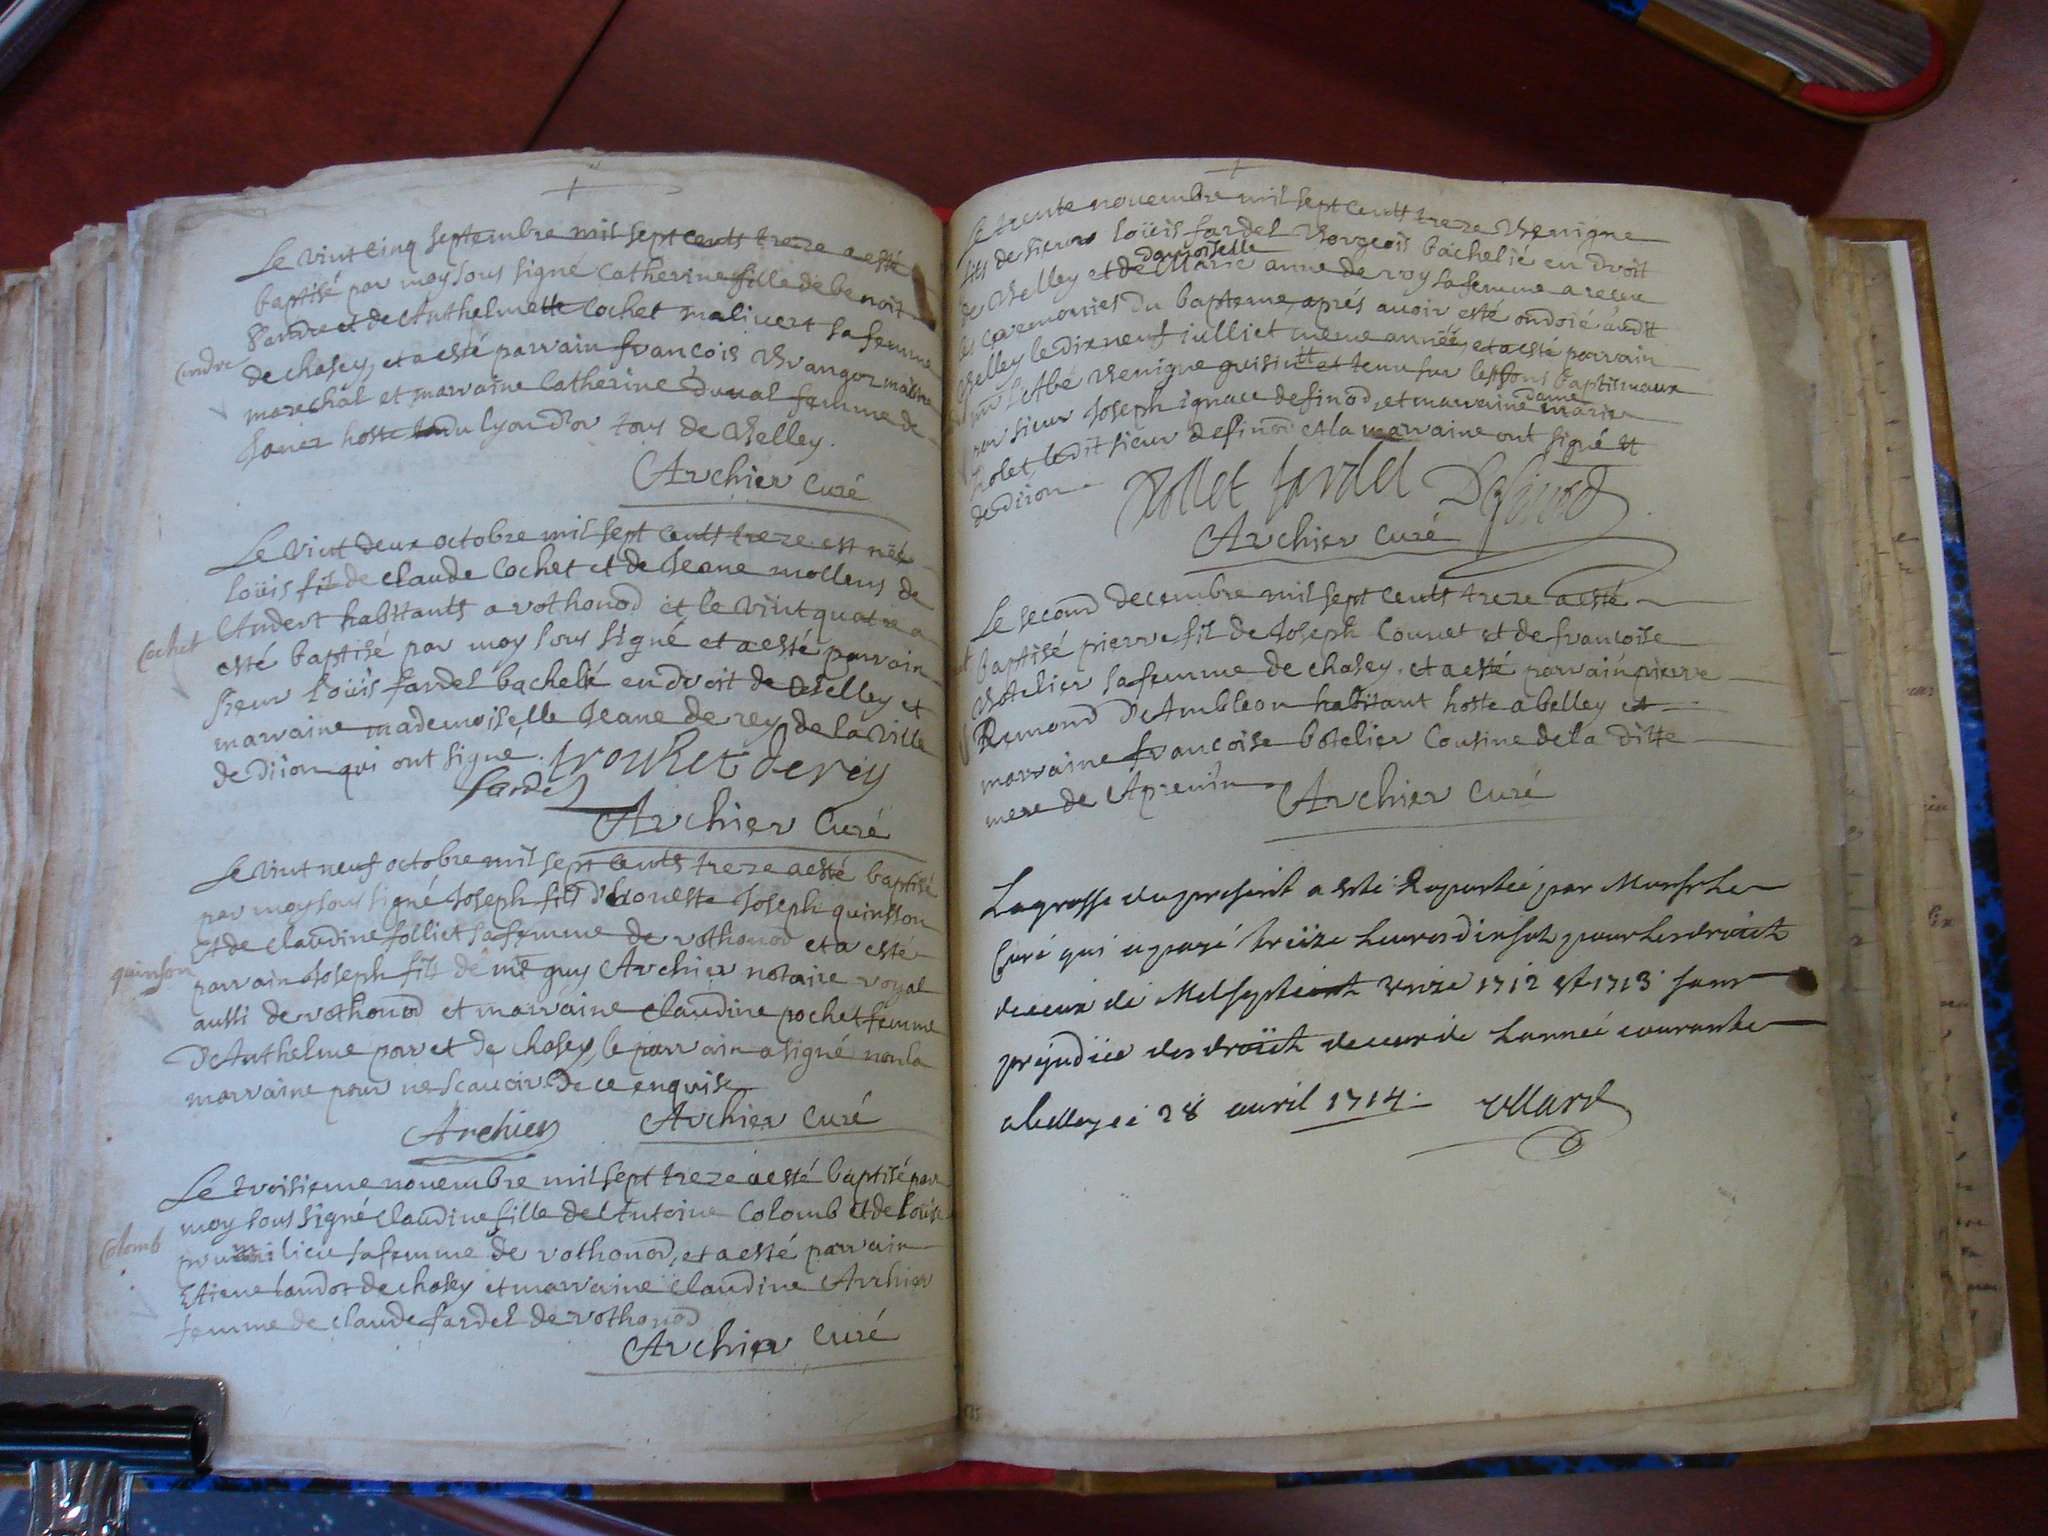 Le vint cinq septembre mil sept cents treze a esté
baptisé par moy sous signé Catherine fille de benoit
et de Anthelmette Cochet malivert sa femme
de chasey, et a esté parrain françois
marechal et marraine Catherine duval femme de
hoste du lyon d'or tous de Belley.
Archier Curé
Le vint deux octobre mil sept cents treze est née
Cochet
Loüis fil de claude Cochet et de Jeane mollens de
Andert habittants a vothonod et le vint quatre a
esté baptisé par moy sous signé et a esté parrain
sieur Loüis fardel bachelié en droit de Belley et
marraine mademoiselle Jeane de rey, de la ville
de diion qui ont signé. de rey
fardel
Archier Curé
Le vint neuf octobre mil sept cents treze a esté baptisé
par moy sous signé Joseph fils d'honeste Joseph quinsson
et de claudine folliet sa femme de vothonod et a esté
quinson
parrain Joseph fils de me guy Archier notaire royal
aussi de vothonod et marraine claudine pochet femme
d'Anthelme parret de chasey, le parrain a signé non la
marraine pour ne scavoir de ce enquise
Archier Archier Curé
Le troisieme novembre mil sept treze a esté baptisé par
moy sous signé claudine fille de Antoine Colomb et de Loüise
Colomb
sa femme de vothonod, et a esté parrain
Etiene landot de chasey et marraine claudine Archier
femme de claude fardel de vothonod
Archier Curé
Le trente novembre mil sept cents treze Benigne
fils de sieur Loüis fardel Borgeois bachelié en droit
damoiselle
de Belley et de Marie anne de rey sa femme a receu
les ceremonies du bapteme, aprés avoir esté ondoié audit
Belley le dix neuf iulliet meme année, et a esté parrain
mr l'Abé Benigne et tenu sur les fons baptismaux
dame
par sieur Joseph ignace desinod, et marraine marie
Rolet, le dit sieur desinod et la marraine ont signé et
de diion.
Rollet fardel Desinod
Archier Curé
Le second decembre mil sept cents treze a esté
baptisé pierre fil de Joseph Couvet et de francoise
Botelier sa femme de chasey. et a esté parrain pierre
Remond d'Ambleon habitant hoste a belley et
marraine francoise botelier Cousine de la ditte
mere de Apremin
Archier Curé
La grosse du present a esté Raportée par Monsr le
Curé qui a payé treize livres dix sols pour les droits
de ceux de Mil sept cent 1712 et 1713 sans
prejudice des droits de ceux de l'année courante
a belley ce 28 avril 1714.